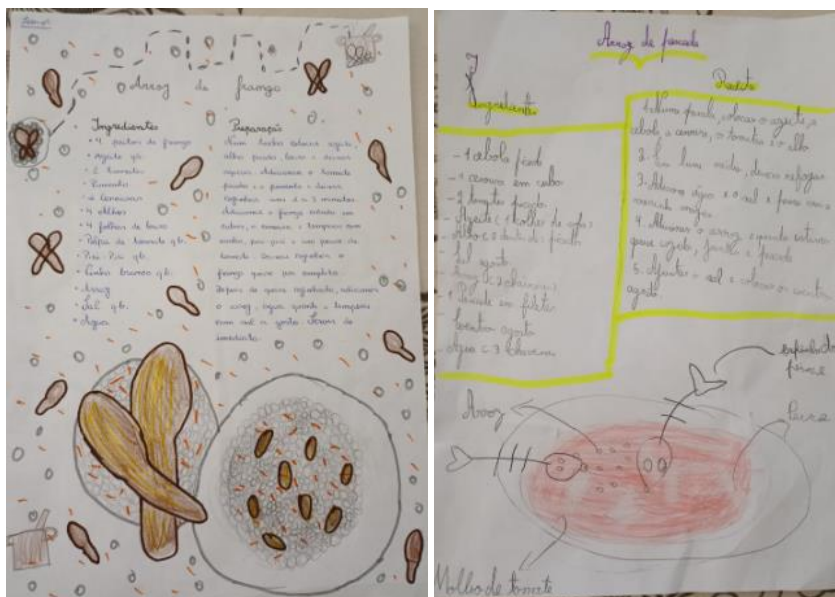 Arroz de frango
Ingredientes
• 4 peitos de frango
• Azeite qb.
• 2 tomates
• Pimento
• 2 cenouras
• 4 Alhos
• 4 folhas de louro
• Polpa de tomate qb.
• Piri-Piri qb.
• Vinho branco qb.
• Arroz
• Sal qb.
• Água
Preparação
Num tacho coloca azeite,
alho picado, louro e deixas
Adicionas o tomate
picado e o pimento e deixas
refogar uns 2 a 3 minutos.
Adicionas o frango cortado em
cubos, a cenoura e temperas com
vinho, piri-piri e um pouco de
tomate. Deixas refogar o
frango quase por completo.
Depois de quase refogado, adicionas
o arroz, água quente e temperas
com sal a gosto. Servir de
imediato.
Arroz de pescada
Ingredientes
- 1 cebola picada
- 1 cenoura em cubo
- 2 tomates picado
- Azeite (colher de sopa)
- Alho (2 dentes) picado
- Sal agosto
- Arroz (2 chávenas)
- 1 Pescada em filetes
- Coentros agosto
- Água (3 Chávena
Receita
1. Numa panela, colocar o azeite, a
cebola, a cenoura, o tomate e o alho
2. Em lume médio, deixar refogar
3. Adicionar água e o sal e
4. Adicionar o arroz e quando estiver
quase cozido, juntar a pescada
5. Ajustar o sal e colocar os coentros
agosto.
Arroz
espinha do
peixe
Peixe
Molho de tomate